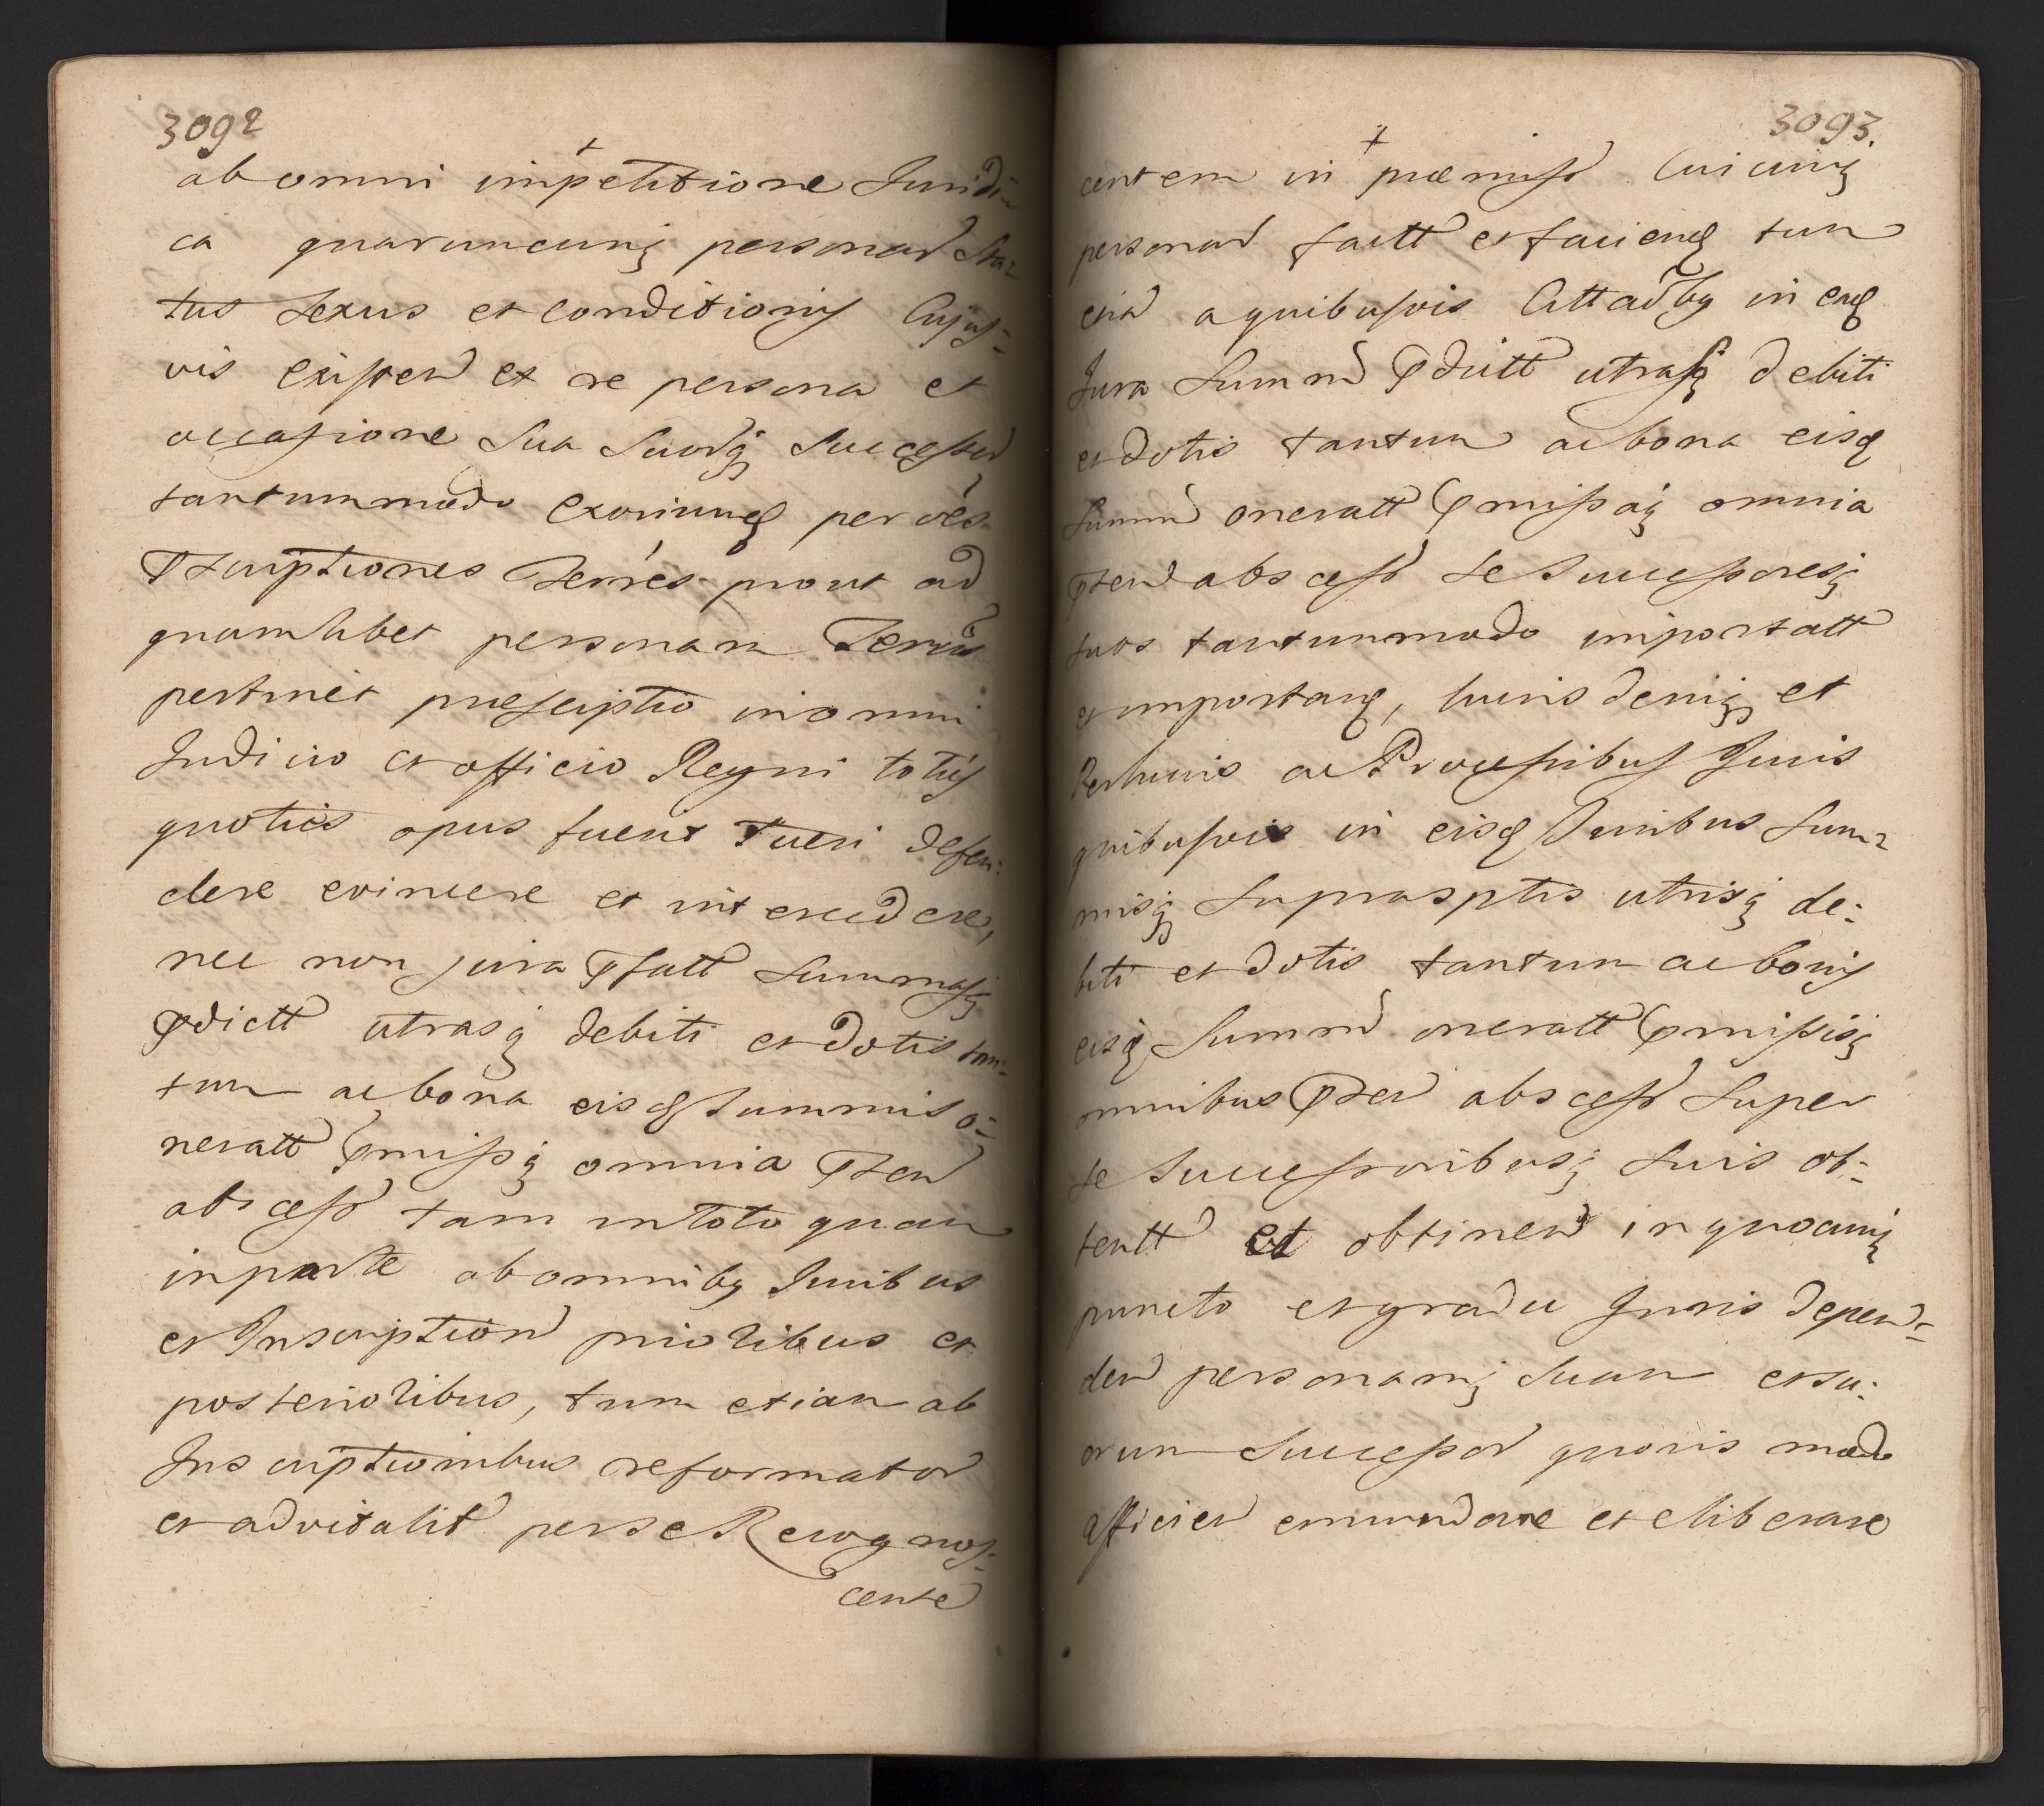 3092
+
ab omni impetitione Juridi=
ca quaruncunq personar Sta=
tus Sexus et conditionis Cujus=
vis existen et re persona et
occasione Sua Suorq Successor
tantummodo exoriunq per oes
Pscriptiones Terres prout ad
quamlibet personam Terris
pertinet praescriptio in omni
Judicio et officio Regni toties
quoties opus fuerit tueri defen=
dere evincere et intercedere,
nec non jura Pfatt Summasq
Pdictt utrasq debiti et dotis tan=
tum ac bona eisq Summis o=
neratt Pmissq omnia Pten
abs cess tam in toto quam
in parte ab omnibq Juribus
et Inscription prioribus et
posterioribus, tum etiam ab
Inscriptionibus reformator
et advitalit per se Recognos=
cente
3093.
+
centem in praemiss Cuicunq
personar factt et faciend tum
etia a quibusvis Attadbq in eaq
Jura Summ Pdictt utrasq debiti
et dotis tantum ac bona eisq
Summ oneratt Pmissaq omnia
Pten abs cess se Successoresq
suos tantummodo importatt
et importanq, lucris deniq et
Perlucris ac Processibus Juris
quibusvis in eisq Juribus Sum=
misq Suprasptis utrisq de=
biti et dotis tantum ac bonis
eisq Summ oneratt Pmissisq
omnibus Pten abs cess Super
se Successoribusq suis ob=
tentt et obtinen in quocunq
puncto et gradu Juris depen=
den personamq Suam et su=
orum Successor quovis modo
afficien emundare et eliberare